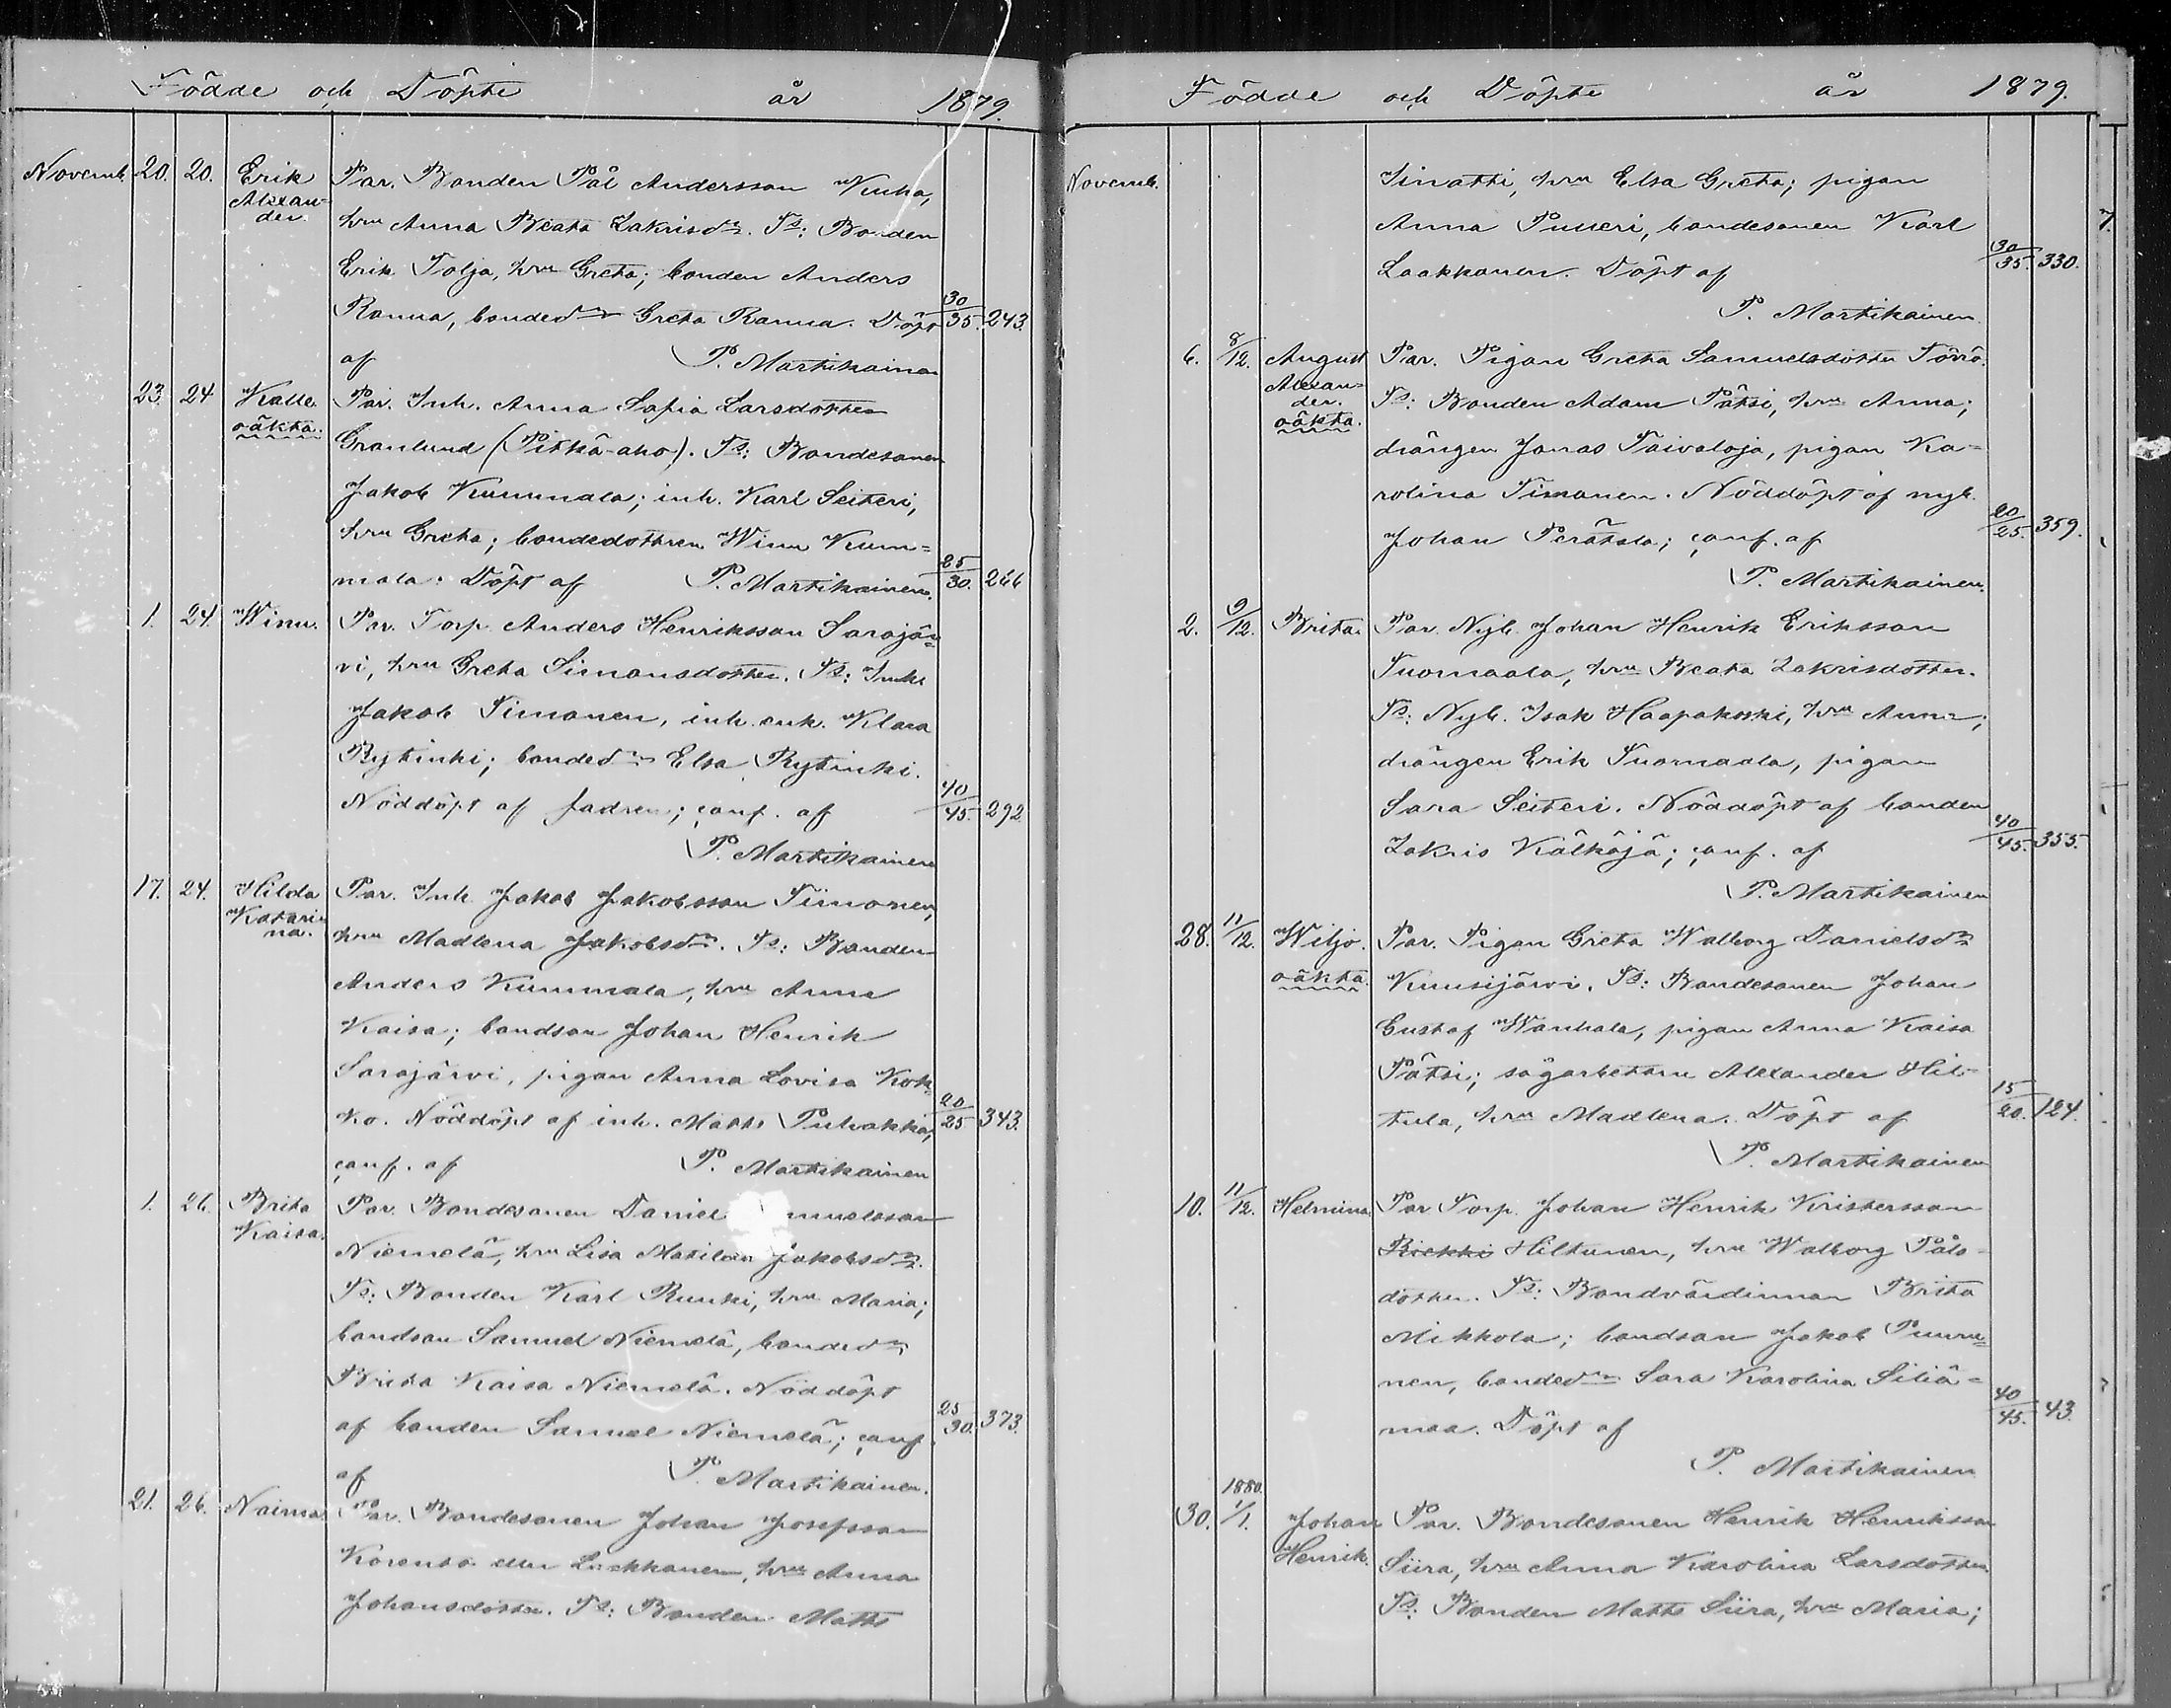 Födde och Döpte år 1879.
Novemb. 20. 20. Erik Alexander. Par. Bonden Pål Andersson Kuha,
hru Anna Beata Zakrisdr. Ts: Bonden
Erik Tolja, hru Greta; bonden Anders
Ranua, bondedr Greta Ranua. Döpt 30/35. 243.
af P. Martikainen
23. 24 Kalle. oäkta. Par. Inh. Anna Sofia Larsdotter
Granlund (Pitkä-aho). Ts: Bondesonen
Jakob Kummala; inh. Karl Seiteri,
hru Greta; bondedottren Winu Kum=
mala. Döpt af P. Martikainen. 25/30. 266
1. 24. Winu. Par. Torp. Anders Henriksson Sarajär=
vi, hru Greta Simonsdotter. Ts: Inh.
Jakob Timonen, inh. enk. Klara
Rytinki; bondedr Elsa Rytinki.
Nöddöpt af fadren; conf. af 40/45. 292
P. Martikainen
17. 24. Hilda Katarina. Par. Inh. Jakob Jakobsson Timonen,
hru Madlena Jakobsdr. Ts: Bonden
Anders Kummala, hru Anna
Kaisa; bondson Johan Henrik
Sarajärvi, pigan Anna Lovisa Kok=
ko. Nöddöpt af inh. Matts Puhakka, 20/25 343.
conf. af P. Martikainen
1. 26. Brita Kaisa. Par. Bondesonen Daniel muelsson
Niemelä, hru Lisa Matilda Jakobsdr.
Ts: Bonden Karl Runki, hru Maria;
bondson Samuel Niemelä, bondedr
Brita Kaisa Niemelä. Nöddöpt
af bonden Samuel Niemelä; conf. 25/30. 373.
af P. Martikainen.
21. 26. Naima Par. Bondesonen Johan Josefsson
Korento eller Lackkanen, hru Anna
Johansdotter. Ts: Bonden Matts
Födde och Döpte år 1879.
Novemb. Sinatti, hru Elsa Greta; pigan
Anna Pusseri, bondesonen Karl
Laakkonen. Döpt af 30/35. 330.
P. Martikainen
6. 8/12. August Alexander. oäkta. Par. Pigan Greta Samuelsdotter Törrö.
Ts: Bonden Adam Pätsi, hru Anna;
drängen Jonas Taivaloja, pigan Ka=
rolina Timonen. Nöddöpt af nyb.
Johan Perätalo; conf. af 20/25. 359.
P. Martikainen.
2. 9/12. Brita Par. Nyb. Johan Henrik Eriksson
Tuomaala, hru Beata Zakrisdotter.
Ts: Nyb. Isak Haapakoski, hru Anna;
drängen Erik Tuomaala, pigan
Sara Seiteri. Nöddöpt af bonden
Zakris Kälkäjä; conf. af 40/45. 355.
P. Martikainen
28. 11/12. Wiljo. oäkta. Par. Pigan Greta Walborg Danielsdr
Kuusijärvi. Ts: Bondesonen Johan
Gustaf Wanhala, pigan Anna Kaisa
Pätsi; sågarbetaren Alexander Hil=
tula, hru Madlena. Döpt af 15/20. 124.
P. Martikainen
10. 11/12. Helmina Par Torp. Johan Henrik Kristersson
Riekki Hiltunen, hru Walborg Påls=
dotter. Ts: Bondvärdinnan Brita
Mikkola; bondson Jakob Puuru=
nen, bondedr Sara Karolina Siliä=
maa. Döpt af 40/45. 43.
P. Martikainen
30. 1880. 1/1. Johan Henrik. Par. Bondesonen Henrik Henriksson
Siira, hru Anna Karolina Larsdotter
Ts: Bonden Matts Siira, hru Maria;